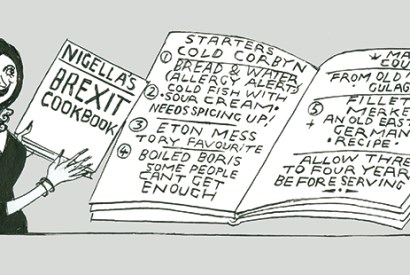 NIGELLA'S
BREXIT
COOKBOOK
STARTERS
COLD CORBYN
① BREAD & WATER
(ALLERGY ALERTS)
② COLD FISH WITH
• SOUR CREAM •
NEEDS SPICING UP!
③ ETON MESS
TORY FAVOURITE
④ BOILED BORIS
SOME PEOPLE
CAN'T GET
ENOUGH
FROM OLD
GULAG
⑤ FILLET
MERKE
AN OLD EAST
GERMAN
• RECIPE •
ALLOW THRE
TO FOUR YEAR
BEFORE SERVING